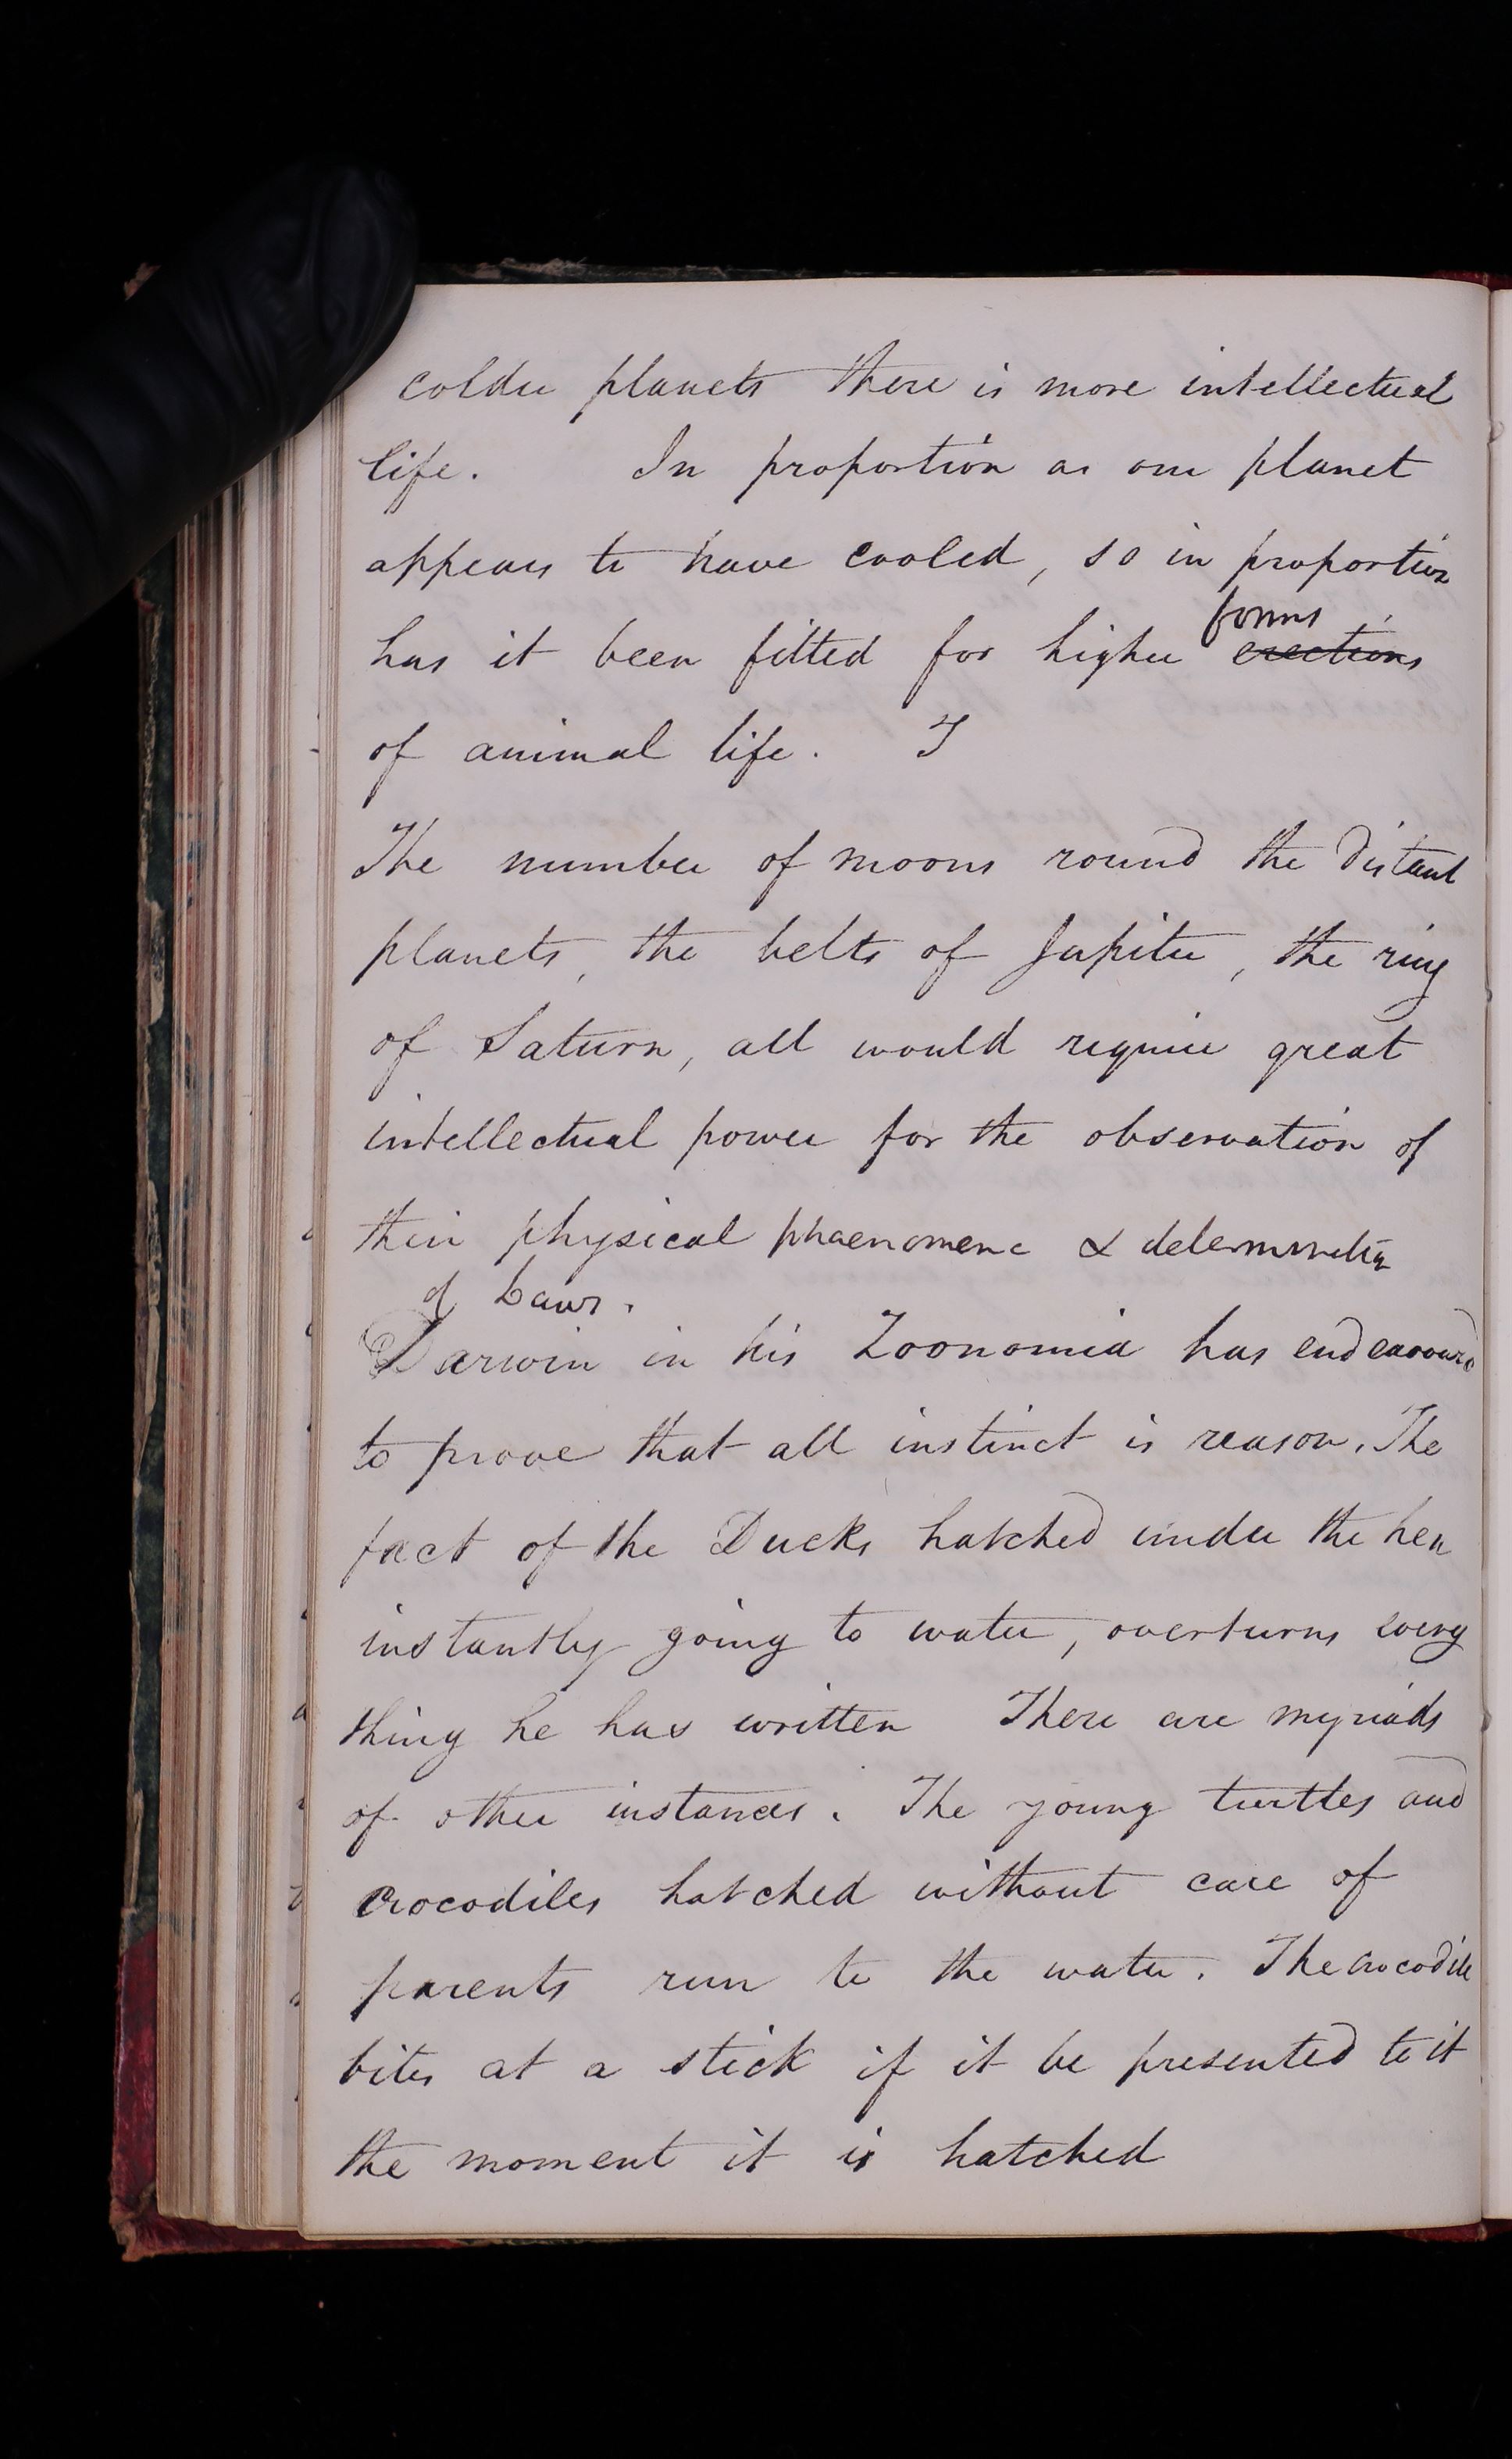 colder planets there is more intellectual
life. In proportion as our planet
appears to have cooled, so in proportion
forms
has it been fitted for higher erections
of animal life. T
The number of moons round the distant
planets, the belts of Jupiter, the ring
of Saturn, all would require great
intellectual power for the observation of
their physical phaenomena & determination
of Laws.
Darwin in his Zoonomia has endeavoured
to prove that all instinct is reason. The
fact of the Ducks hatched under the hen
instantly going to water, overturns every
thing he has written There are myriads
of other instances. The young turtles and
crocodiles hatched without care of
parents run to the water. The crocodile
bites at a stick if it be presented to it
the moment it is hatched